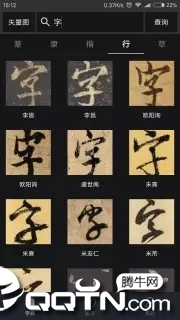 16:12 0.37K/s 23%
矢量图 字 查询
篆 隶 楷 行 草
字 字 字
李邕 李邕 欧阳询
字 字 字
欧阳询 虞世南 朱熹
字 字 字
朱熹 米友仁 米芾
腾牛网
QQTN.COM